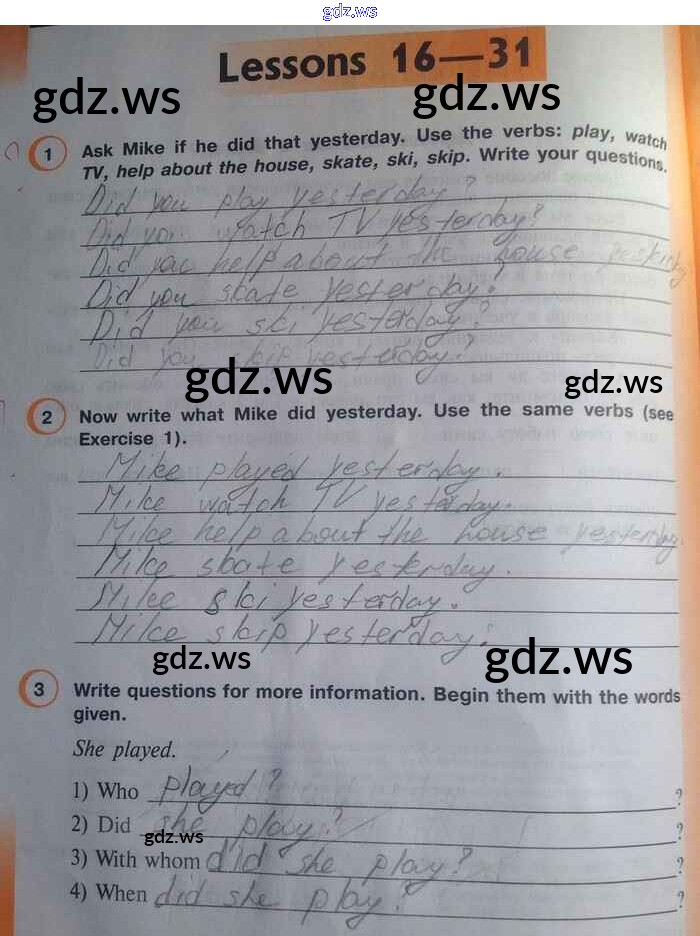 gdz.ws
Lessons 16—31
gdz.ws gdz.ws
1 Ask Mike if he did that yesterday. Use the verbs: play, watch
TV, help about the house, skate, ski, skip. Write your questions.
Did you play yesterday?
Did you watch TV yesterday?
Did you help about the house
Did you skate yesterday?
Did you ski yesterday?
Did you skip yesterday?
gdz.ws gdz.ws
2 Now write what Mike did yesterday. Use the same verbs (see
Exercise 1).
Mike played yesterday.
Mike watch TV yesterday.
Mike help about the house yesterday.
Mike skate yesterday.
Mike ski yesterday.
Mike skip yesterday.
gdz.ws gdz.ws
3 Write questions for more information. Begin them with the words
given.
She played.
1) Who played? ?
2) Did she play? ?
gdz.ws
3) With whom did she play? ?
4) When did she play? ?